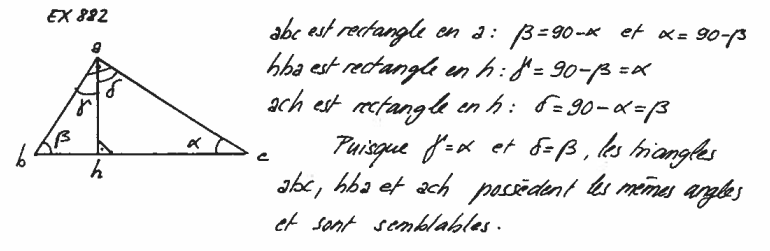 EX 882
a
γ δ
β α
b h c
abc est rectangle en a : β=90-α et α=90-β
hba est rectangle en h : γ=90-β=α
ach est rectangle en h : δ=90-α=β
Puisque γ=α et δ=β, les triangles
abc, hba et ach possèdent les mêmes angles
et sont semblables.